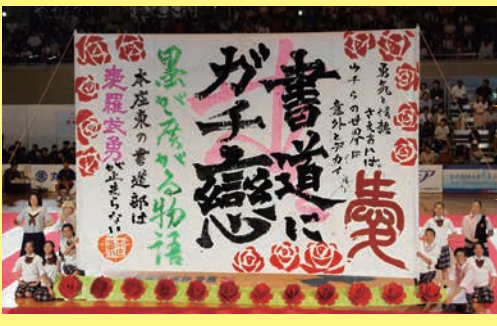 勇気と情熱
さえあれば。
ウチらの世界は
意外とデカイ
愛
書道に
ガチ戀
墨が廣がる物語
本庄東の書道部は
愛羅武勇が止まらない